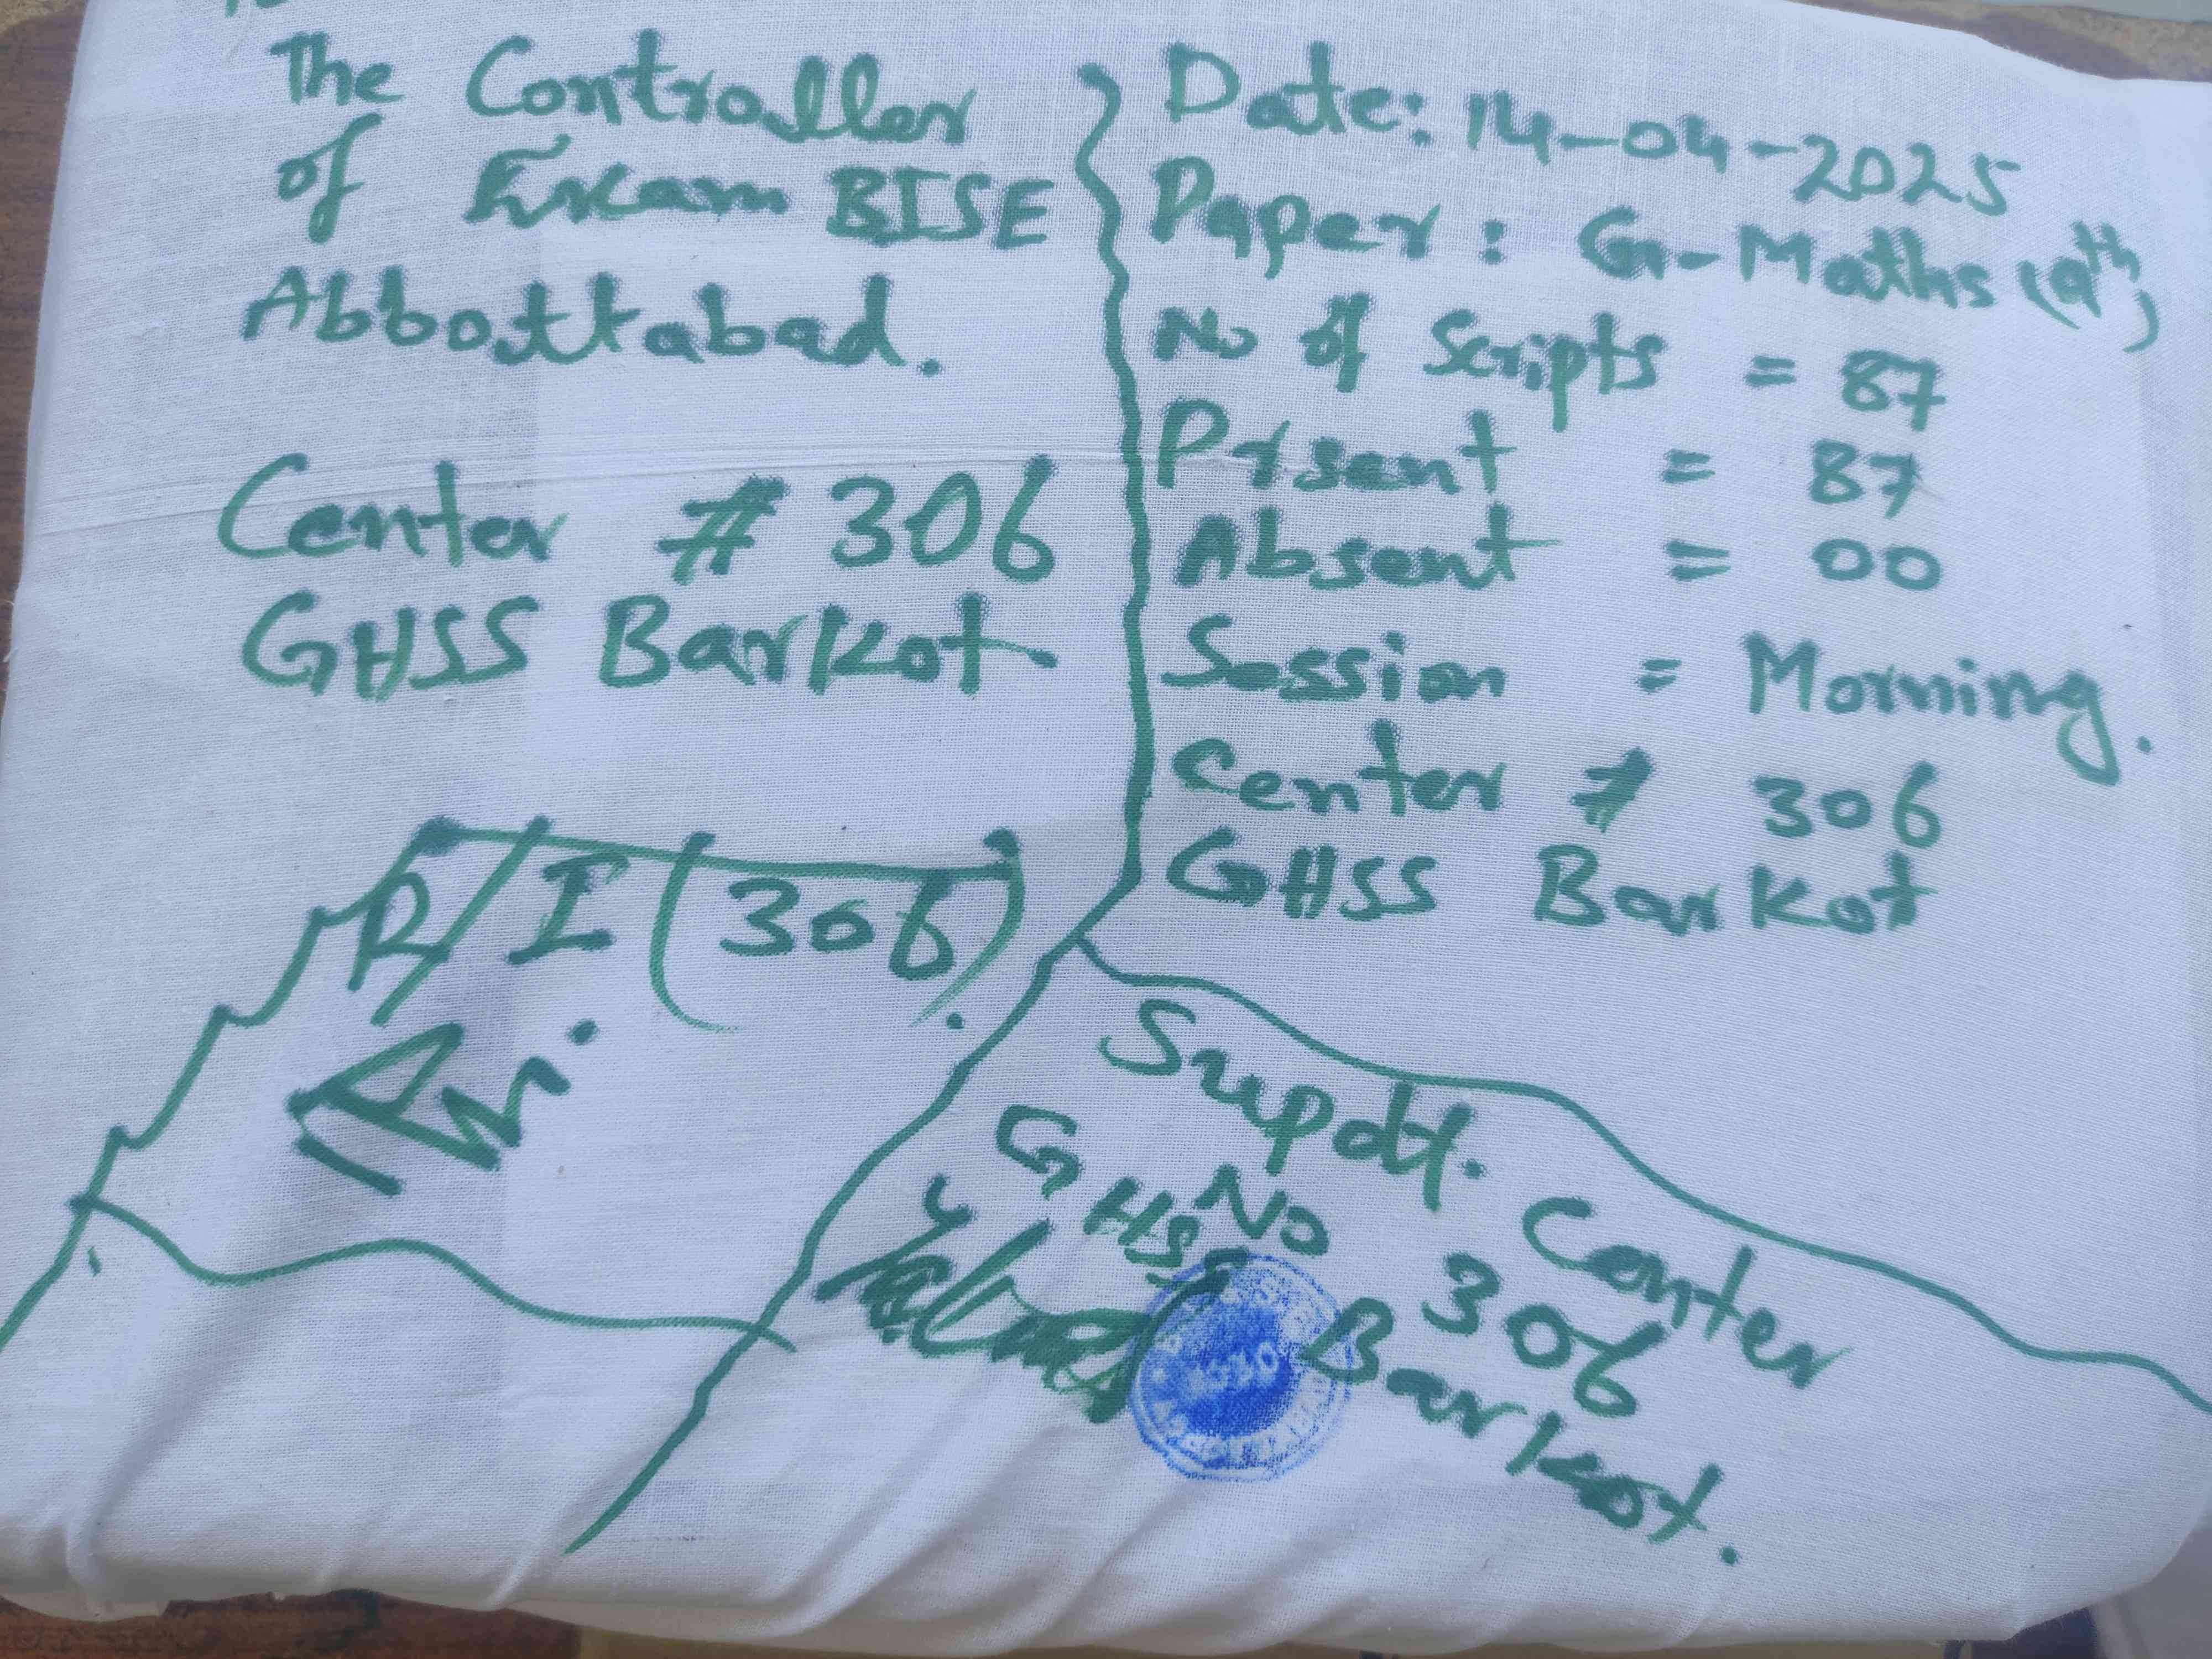 The Controller
of Exam BISE
Abbottabad.
Center # 306
GHSS Barkot
R/I (306).
Date: 14-04-2025
Paper: G-Maths (9th)
No of Scripts = 87
Prsent = 87
Absent = 00
Session = Morning.
Center # 306
GHSS Barkot
Supdt. Center
No 306
GHSS Barkot.